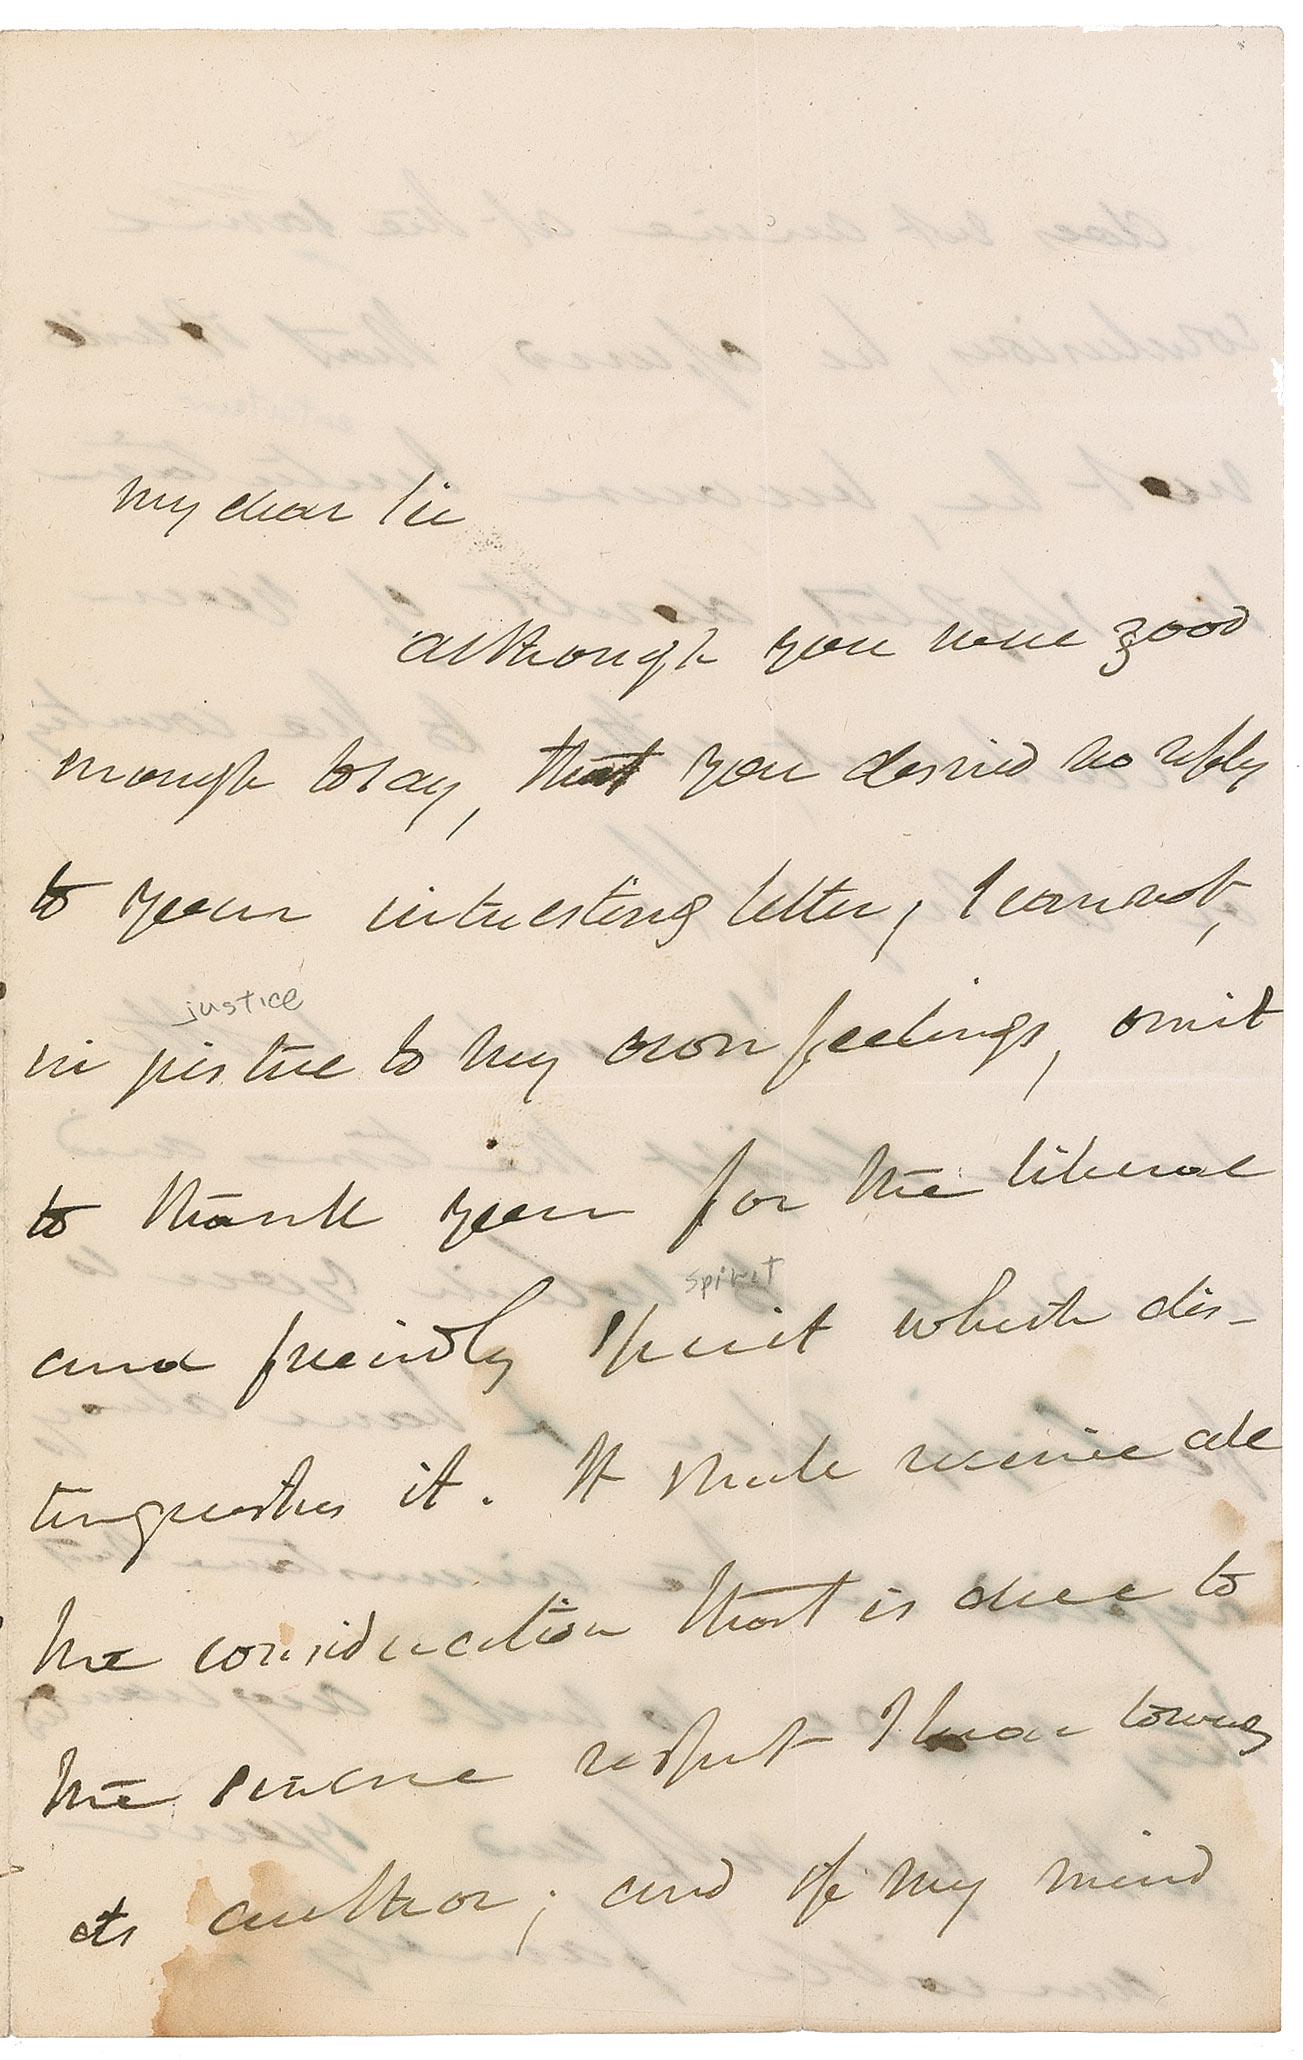 My dear Sir
although you were good
enough to say, that you desired no reply
to your interesting letter, I cannot,
justice
in justice to my own feelings, omit
to thank you for the liberal
spirit
and friendly spirit which dis-
tinguishes it. It shall receive all
the consideration that is due to
the sincere respect I bear towards
its author; and if my mind